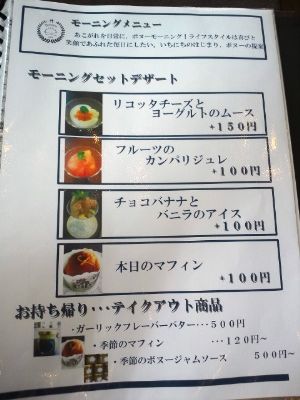 モーニングメニュー
あこがれを日常に、ボヌーモーニング!ライフスタイルは喜びと
笑顔であふれた毎日にしたい。いちにちのはじまり、ボヌーの提案
モーニングセットデザート
リコッタチーズと
ヨーグルトのムース
+150円
フルーツの
カンパリジュレ
+100円
チョコバナナと
バニラのアイス
+100円
本日のマフィン
+100円
お持ち帰り・・・テイクアウト商品
・ガーリックフレーバーバター・・・500円
・季節のマフィン ・・・120円~
・季節のボヌージャムソース 500円~